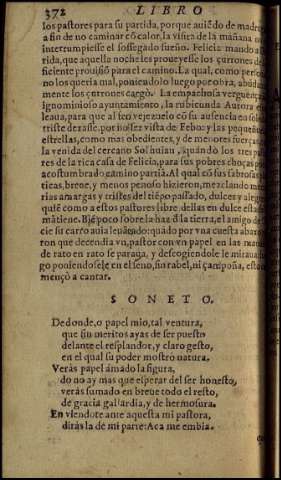 372 LIBRO
los pastores para su partida, porque auiẽdo de madru
a fin de no caminar cõ calor, la vista de la mañana no
interrumpiesse el sossegado sueño. Felicia mando a
rida, que aquella noche les proueyesse los çurrones de
ficiente prouisiõ para el camino. La qual, como perso
no los queria mal, poniendolo luego por obra, abũda
mente los çurrones cargò. La empachosa verguença,
ignominioso ayuntamiento, la rubicunda Aurora
leaua, para que al feo vejezuelo cõ su ausencia en solo
triste dexasse, por no ser vista de Febo: y las pequeñ
estrellas, como mas obedientes, y de menores fuerças
la venida del cercano Sol huian, quando los tres pa
res de la rica casa de Felicia, para sus pobres choças po
acostumbrado camino partiã. Al qual cõ sus sabrosas
ticas, breue, y menos penoso hizieron, mezclando
rias amargas y tristes del tiẽpo passado, dulces y aleg
quiẽ como a estos pastores libre dellas en dulce esta
mãtiene. Biẽ poco sobre la haz ð la tierra, el amigo de
cie su carro auia leuãtado: quãdo por vna cuesta abax
ron que decendia vn, pastor con vn papel en las man
de rato en rato se paraua, y descogiendole le miraua
go poniendosele en el seno, sin rabel, ni çampoña, est
mençò a cantar.
SONETO.
De donde, o papel mio, tal ventura,
que sin meritos ayas de ser puesto
delante el resplandor, y claro gesto,
en el qual su poder mostro natura.
Veràs papel amado la figura,
do no ay mas que esperar del ser honesto,
veràs sumado en breue todo el resto,
de gracia gallardia, y de hermosura.
En viendote ante aquesta mi pastora,
diràs la de mi parte: Aca me embia.